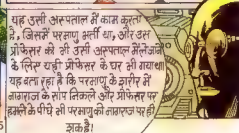 यह उसी अस्पताल में काम करता
है, जिसमें परमाणु भर्ती था, और उस
प्रोफेसर को भी उसी अस्पताल में लेजाने
के लिए यही प्रोफेसर के घर भी गया था।
यह बता रहा है कि परमाणु के शरीर में
नागराज के सांप निकले और प्रोफेसर पर
हमले के पीछे भी परमाणु को नागराज पर ही
शक है!